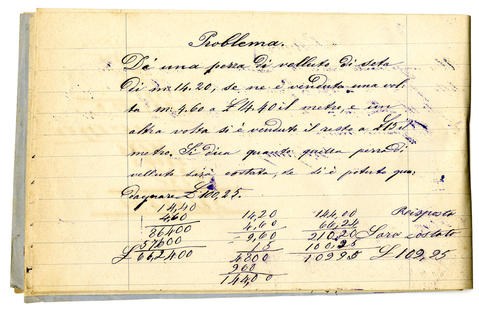 Problema.
Da una pezza di velluto di seta
di m 14.20, se ne è venduta una vol
ta m. 4.60 a £ 14,40 il metro, e un
altra volta si è venduto il resto a £ 15 il
metro, Si dica quanto quella pezza di
velluto sarà costata, se si è potuto gua,
dagnare £ 100,25.
14,40
4,60
86400
57600
£ 662400
14,20
4,60
9,60
15
4800
960
144,00
144,00
66,24
210,20
100,25
109,95
Risposta
Sara costato
£ 109,25